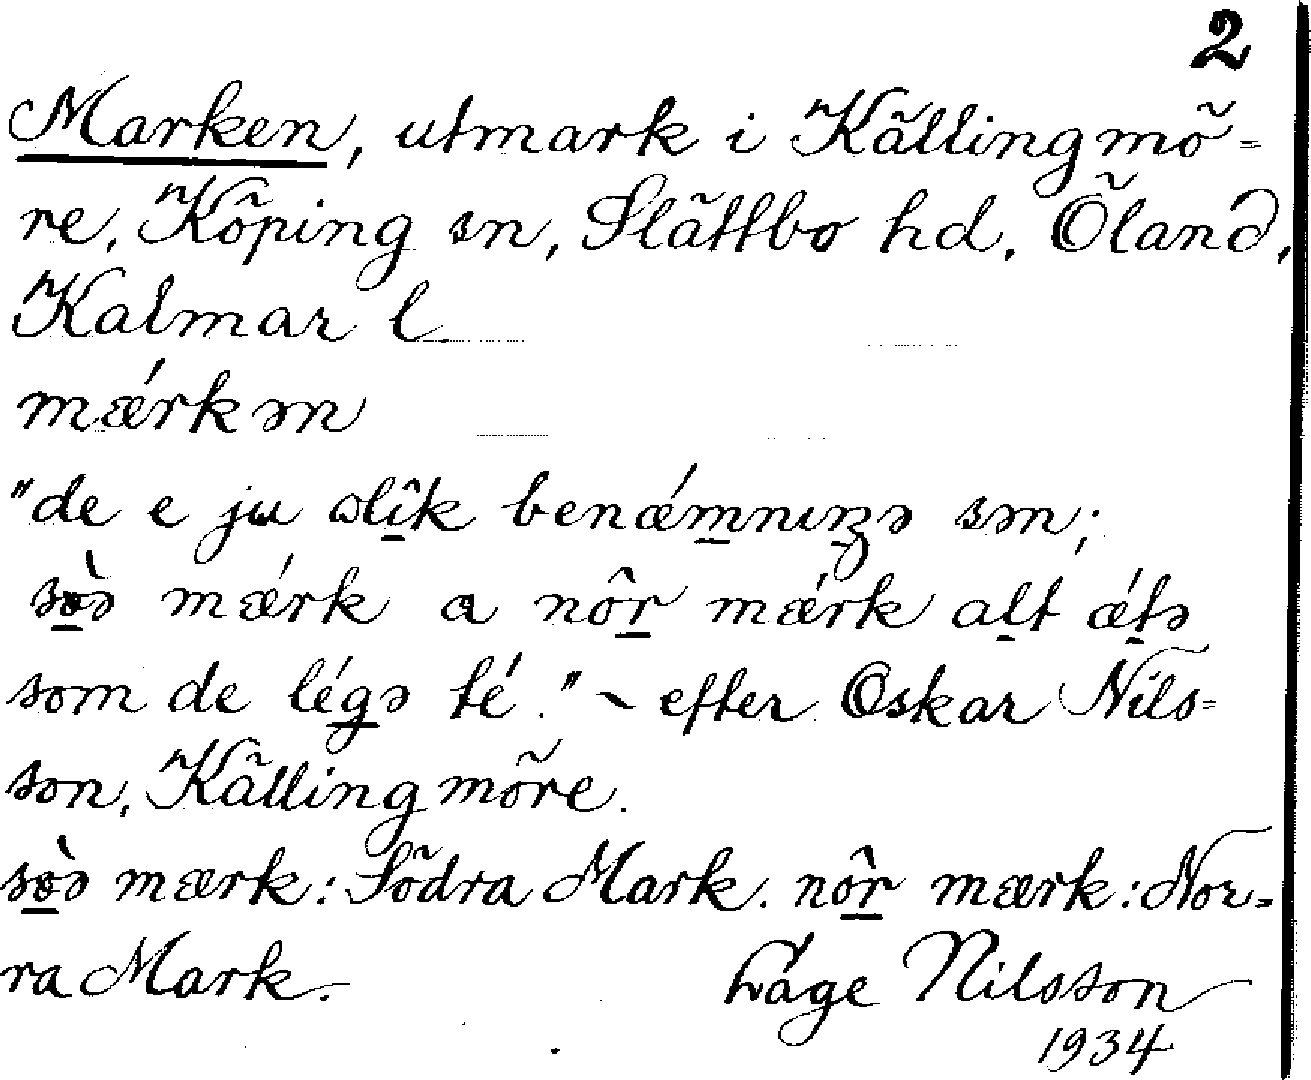 2
Marken, utmark i Källingmö-
re, Köping sn, Slättbo hd, Öland,
Kalmar l
mǽrkən
"de e ju ɷlîk benǽmnıŋə sən;
sòə mǽrk a nôr mǽrk alt ǽtə
som de légə té." – efter Oskar Nils-
son, Källingmöre.
sòə mærk: Södra Mark. nôr mærk: Nor-
ra Mark.
Låge Nilsson
1934